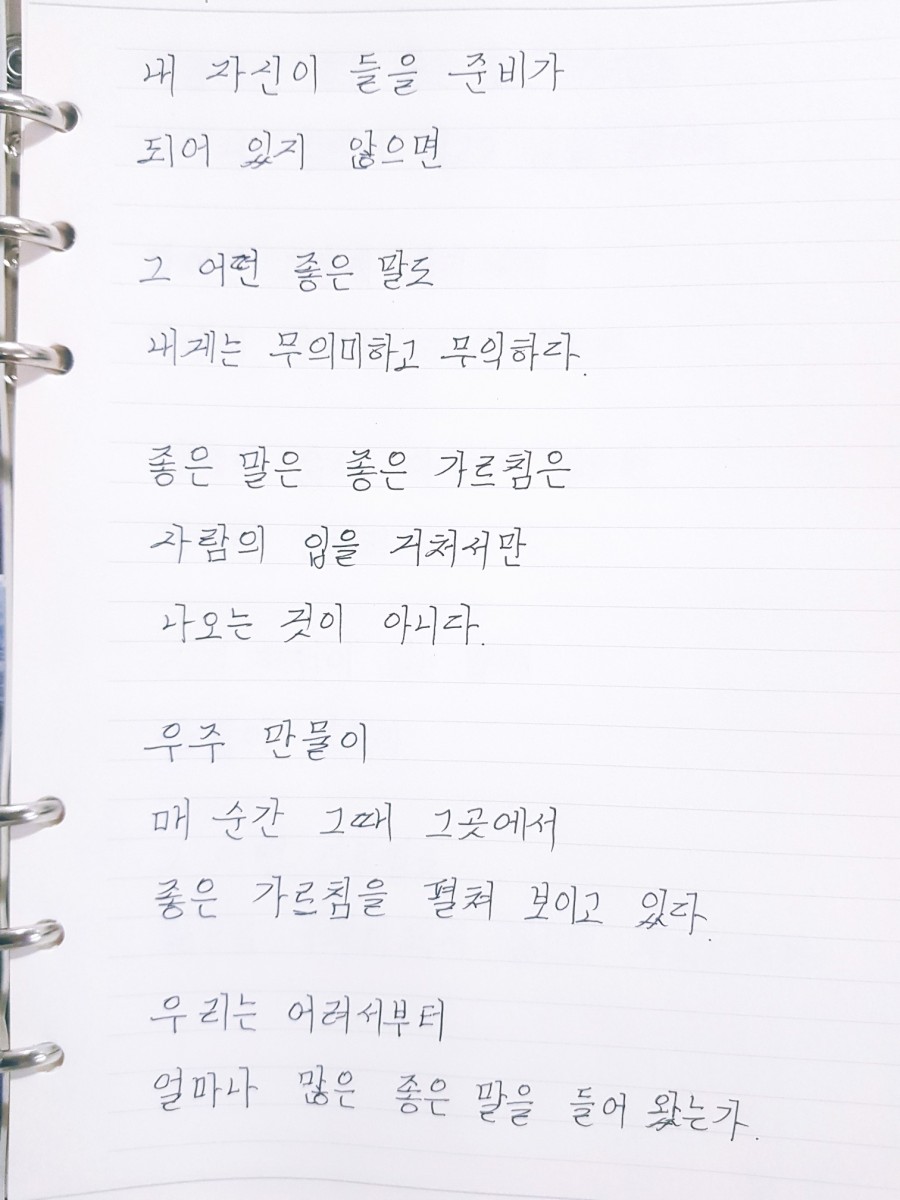 내 자신이 들을 준비가
되어 있지 않으면
그 어떤 좋은 말도
내게는 무의미하고 무익하다.
좋은 말은 좋은 가르침은
사람의 입을 거쳐서만
나오는 것이 아니다.
우주 만물이
매 순간 그때 그곳에서
좋은 가르침을 펼쳐 보이고 있다.
우리는 어려서부터
얼마나 많은 좋은 말을 들어 왔는가.